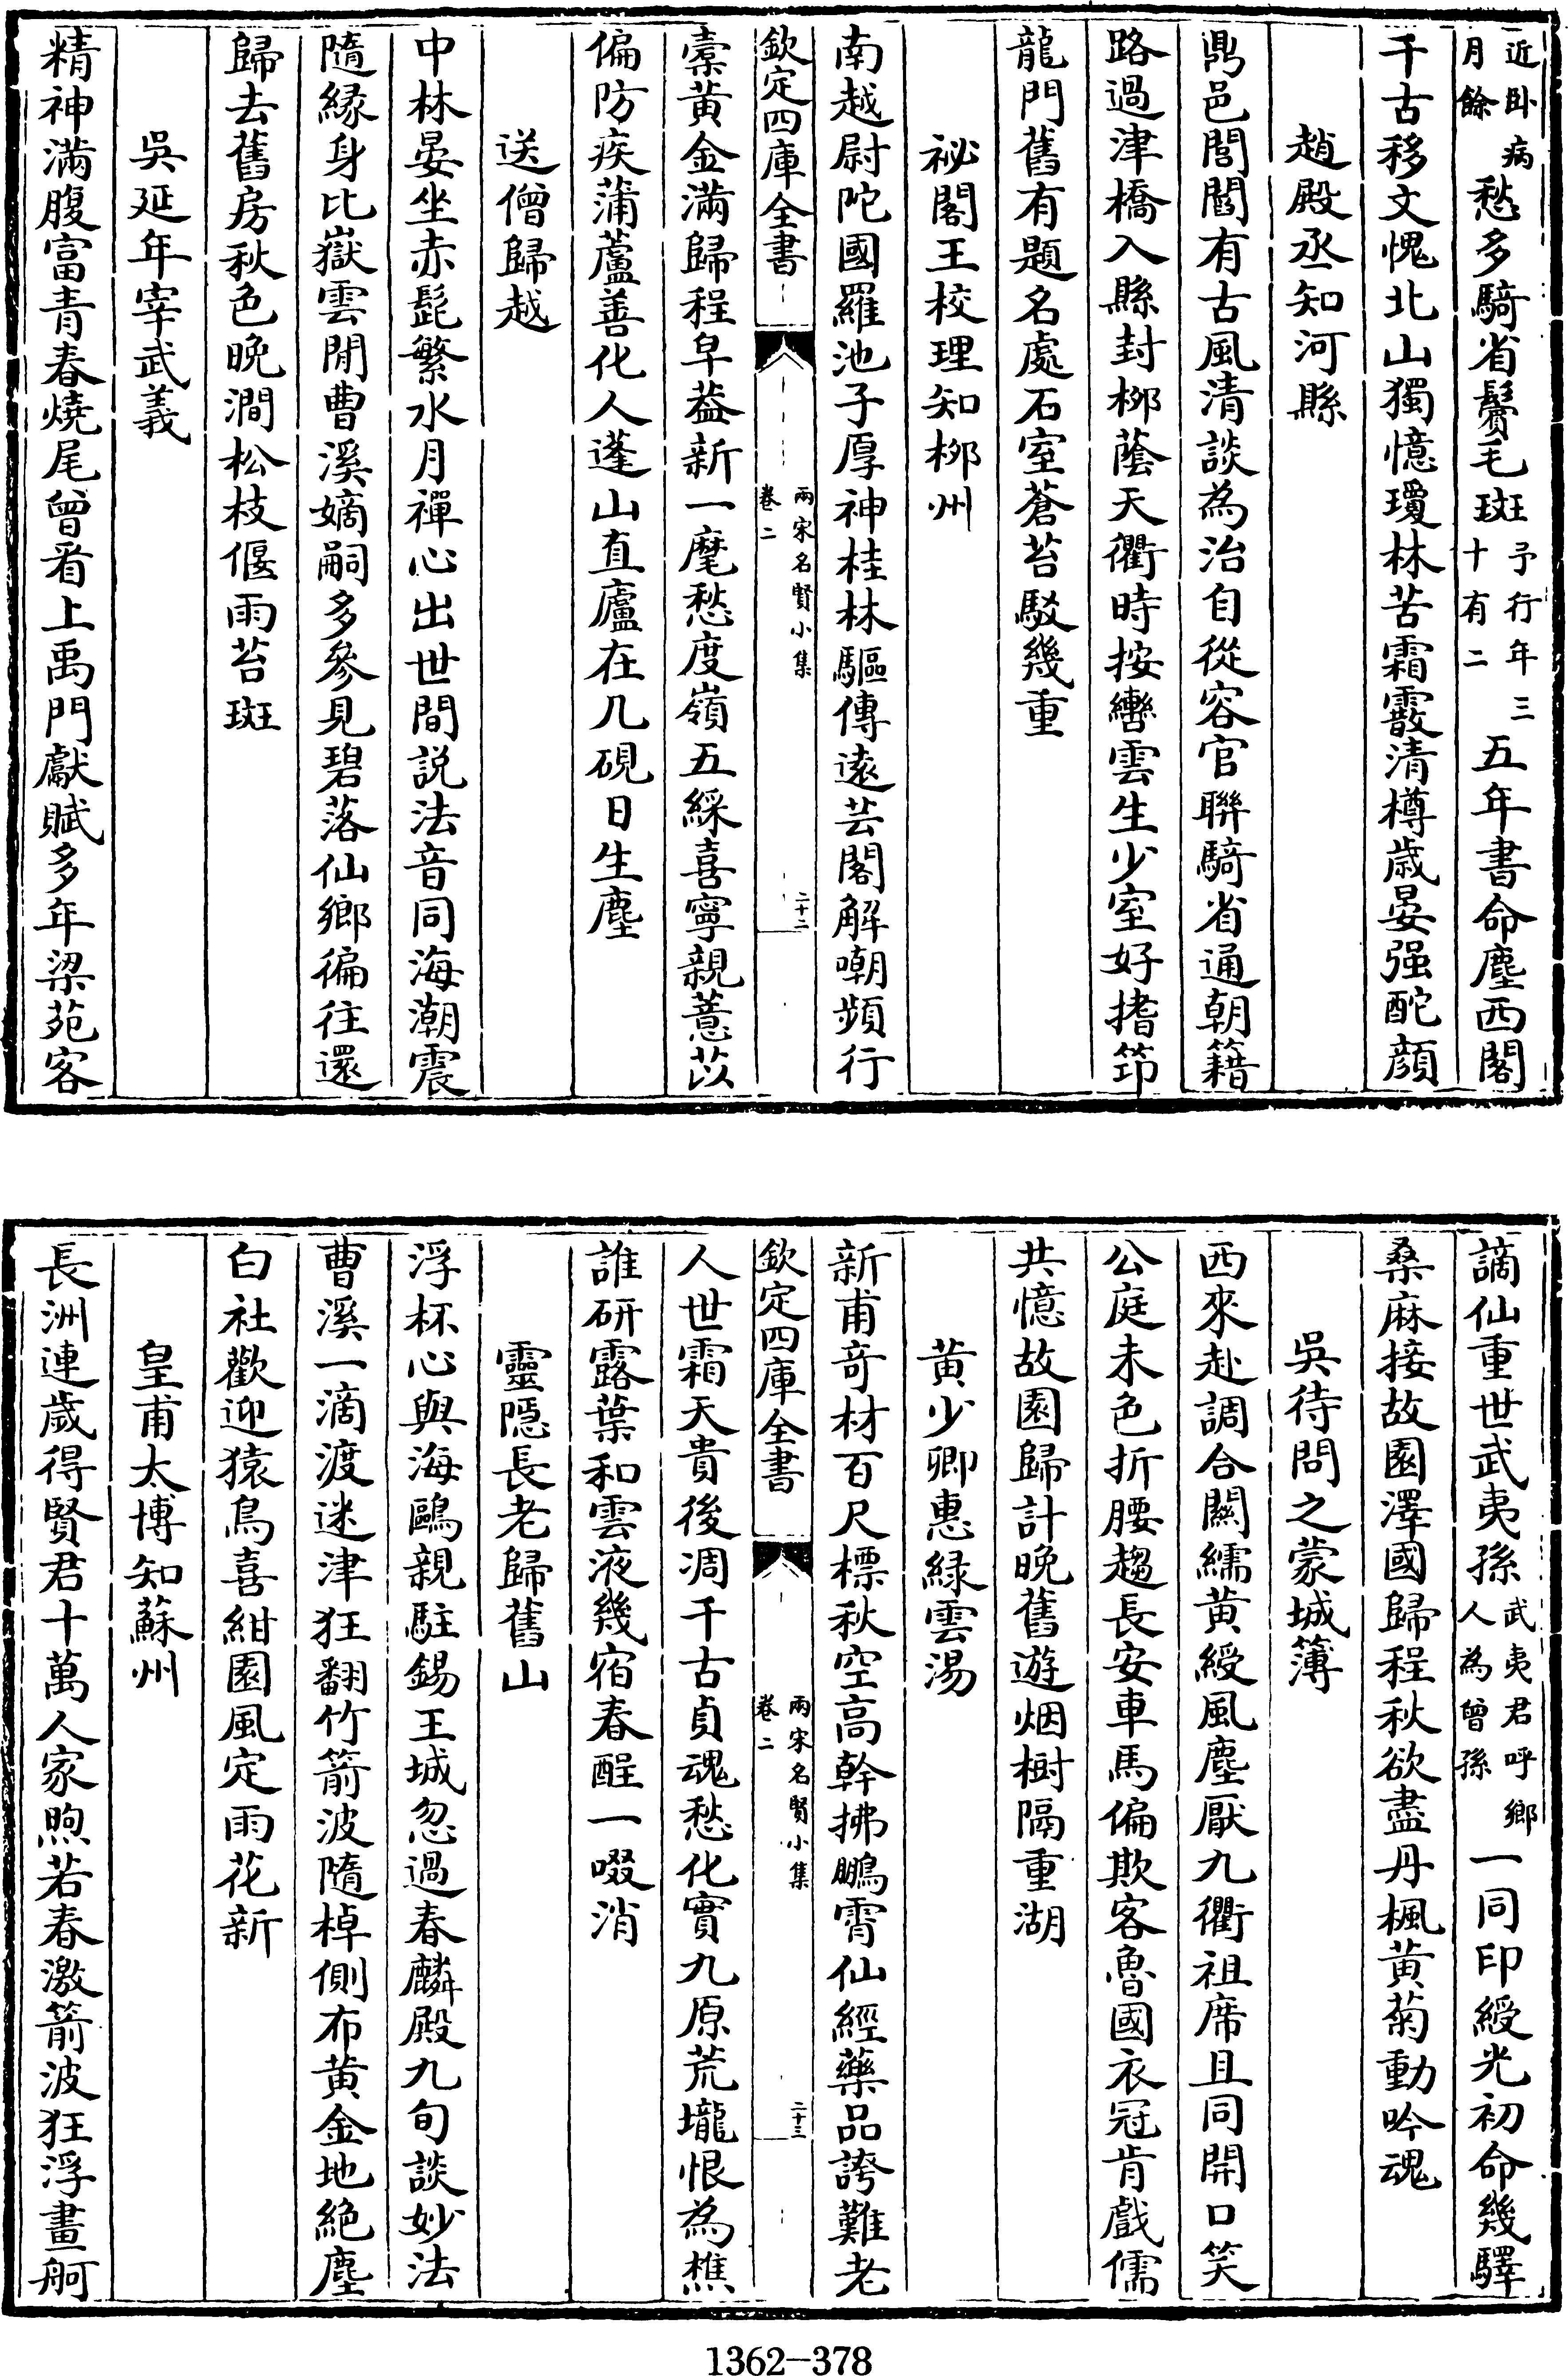 近卧病月餘愁多騎省鬢毛斑予行年三十有二五年書命塵西閣
千古移文愧北山獨憶瓊林苦霜霰清樽歲晏强酡顔
趙殿丞知河縣
鼎邑閭閻有古風清談為治自從容官聯騎省通朝籍
路過津橋入縣封栁蔭天衢時按轡雲生少室好揩笻
龍門舊有題名處石室蒼苔駁幾重
祕閣王校理知栁州
南越尉陀國羅池子厚神桂林驅傳逺芸閣解嘲頻行
欽定四庫全書
兩宋名賢小集
卷二
二十二
橐黄金滿歸程皁葢新一麾愁度嶺五綵喜寧親薏苡
偏防疾蒲蘆善化人蓬山直廬在几硯日生塵
送僧歸越
中林晏坐赤髭繁水月禪心出世間説法音同海潮震
隨緣身比嶽雲閒曹溪嫡嗣多參見碧落仙鄉徧往還
歸去舊房秋色晚澗松枝偃雨苔斑
吳延年宰武義
精神滿腹富青春燒尾曾看上禹門獻賦多年梁苑客
謫仙重世武夷孫武夷君呼鄉人為曾孫一同印綬光初命幾驛
桑麻接故園澤國歸程秋欲盡丹楓黄菊動吟魂
吳待問之蒙城簿
西來赴調合關繻黄綬風塵厭九衢祖席且同開口笑
公庭未色折腰趨長安車馬偏欺客魯國衣冠肯戲儒
共憶故園歸計晚舊遊烟樹隔重湖
黄少卿惠緑雲湯
新甫竒材百尺標秋空高幹拂鵬霄仙經藥品誇難老
欽定四庫全書
兩宋名賢小集
卷二
二十三
人世霜天貴後凋千古貞魂愁化實九原荒壠恨為樵
誰研露葉和雲液幾宿春酲一啜消
靈隱長老歸舊山
浮杯心與海鷗親駐錫王城忽過春麟殿九旬談妙法
曹溪一滴渡迷津狂翻竹箭波隨棹側布黄金地絶塵
白社歡迎猿鳥喜紺園風定雨花新
皇甫太博知蘇州
長洲連歲得賢君十萬人家煦若春激箭波狂浮畫舸
1362-378